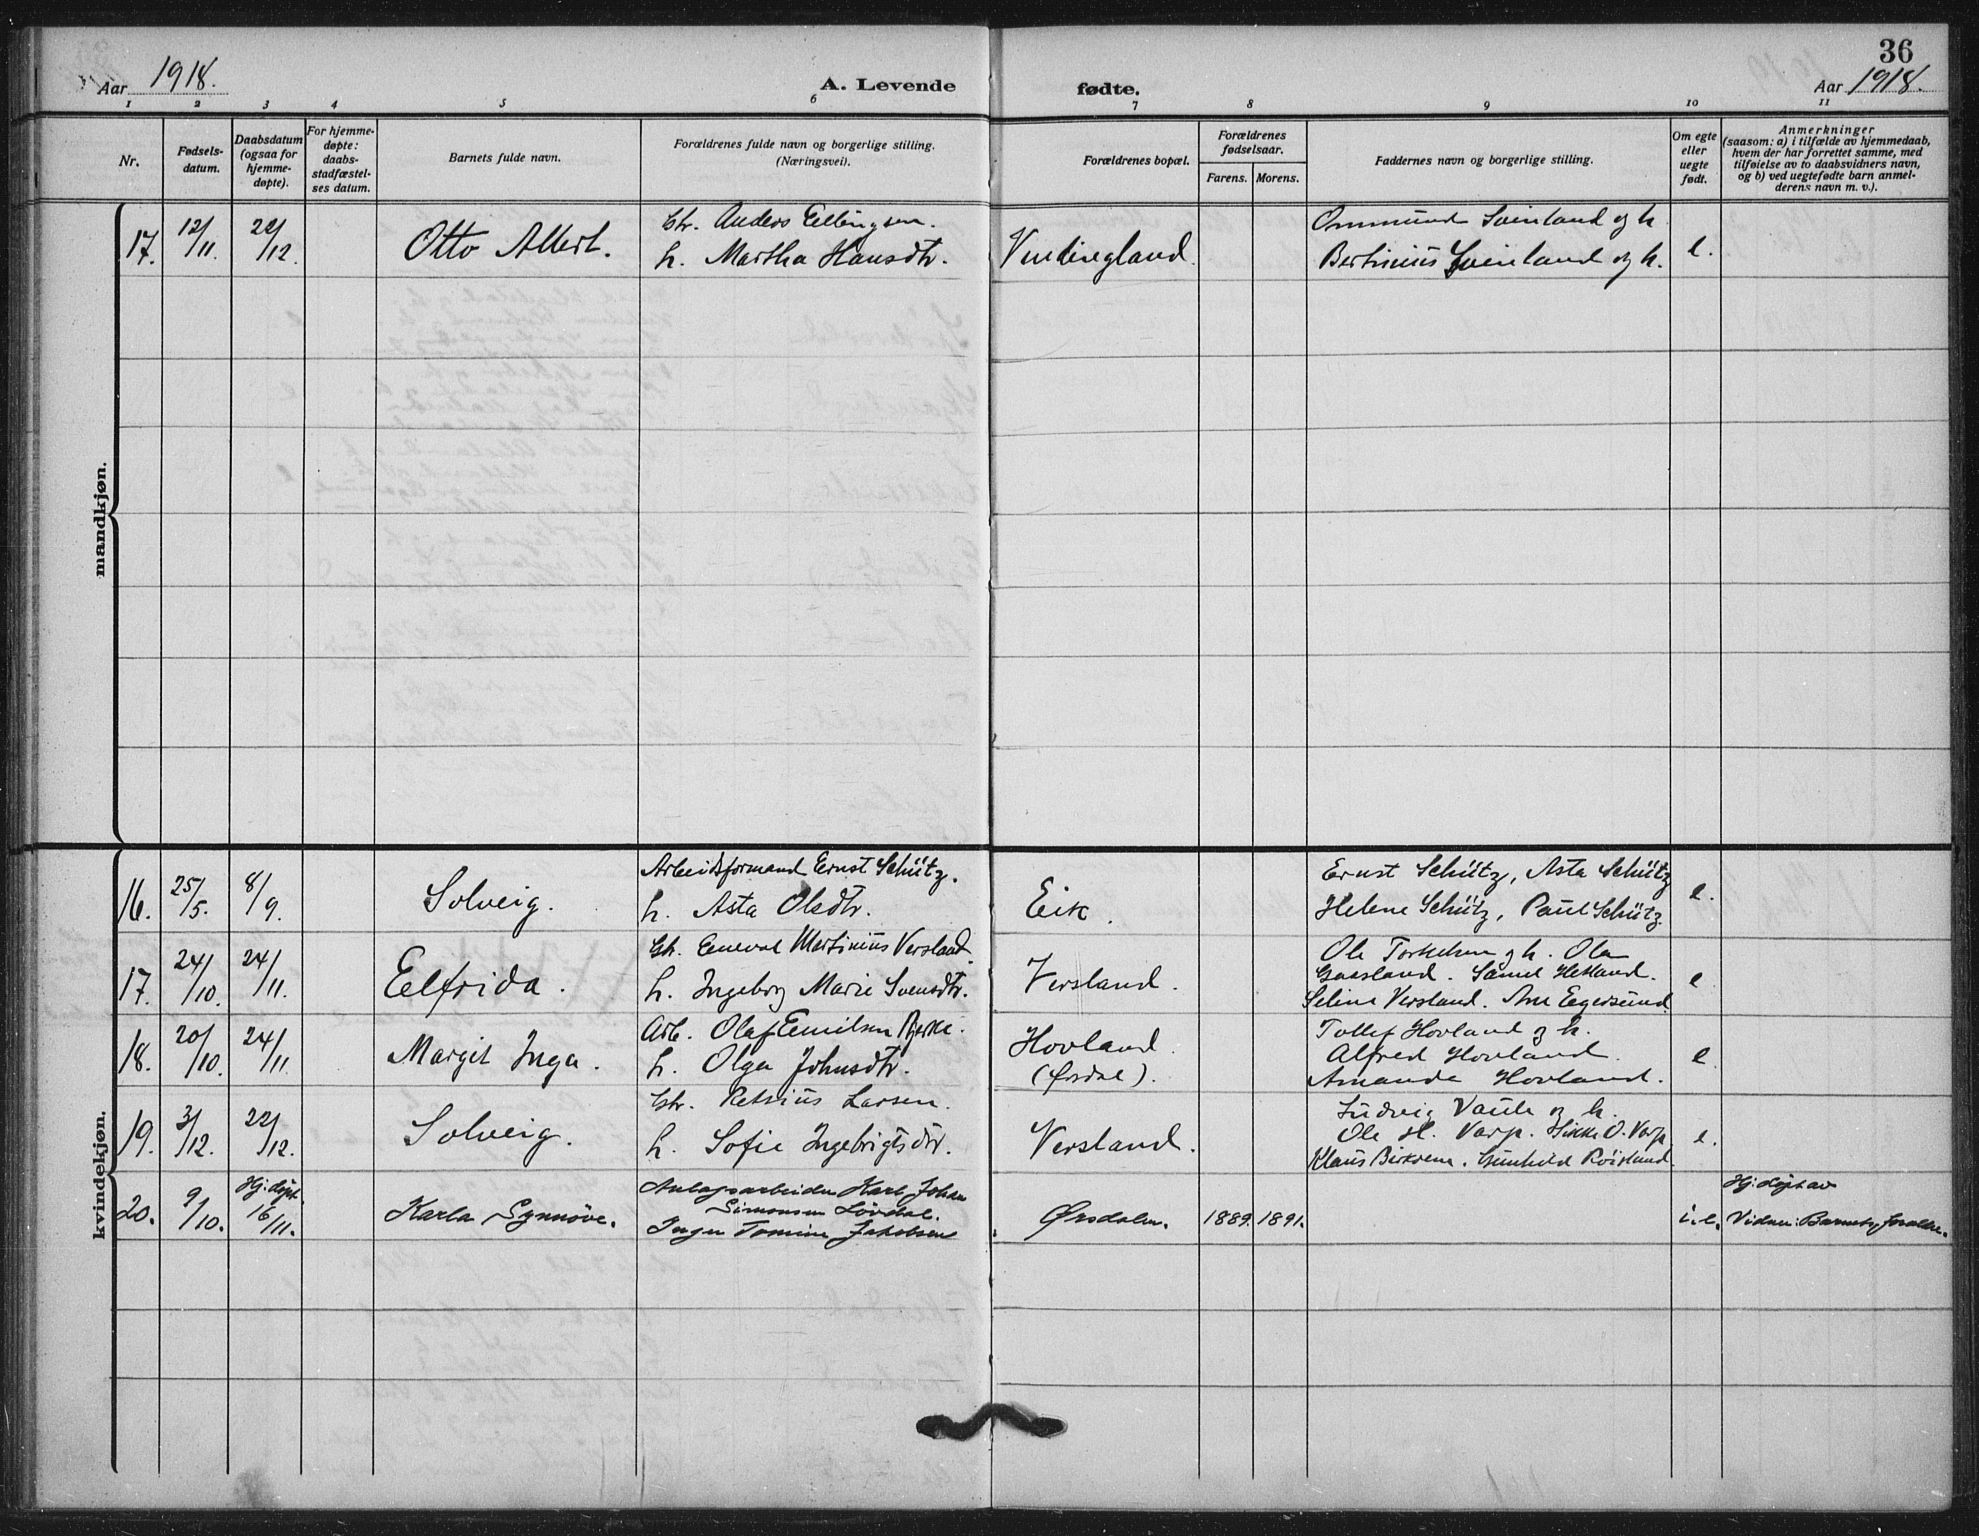 Aar 1918.
A. Levende
fødte.
36
Aar 1918.
1 2 3 4 5 6 7 8 9 10 11
Nr.
Fødsels-
datum.
Daabsdatum
(ogsaa for
hjemme-
døpte).
For hjemme-
døpte:
daabs-
stadfæstel-
ses datum.
Barnets fulde navn.
Forældrenes fulde navn og borgerlige stilling.
(Næringsvei).
Forældrenes bopæl.
Forældrenes
fødselsaar.
Farens. Morens.
Faddernes navn og borgerlige stilling.
Om egte
eller
uegte
født.
Anmerkninger
(saasom: a) i tilfælde av hjemmedaab,
hvem der har forrettet samme, med
tilføielse av to daabsvidners navn,
og b) ved uegtefødte barn anmel-
derens navn m. v.).
mandkjøn.
17. 12/11. 22/12. Otto Albert.
Gbr. Anders Ellingsen.
h. Martha Hansdtr.
Vindingland.
Ommund Sveinland og h.
Bertinius Sveinland og h.
e.
kvindekjøn.
16. 25/5. 8/9. Solveig.
Arbeidsformand Ernst Schütz.
h. Asta Olsdtr.
Eik.
Ernst Schütz, Asta Schütz
Helene Schütz, Paul Schütz.
e.
17. 24/10. 24/11. Elfrida.
Gbr. Enevald Martinius Versland.
h. Ingeborg Marie Svensdtr.
Versland.
Ole Torkelsen og h. Ola
Gaasland. Samuel Hetland.
Seline Versland. Ane Eegersund
e
18. 20/10. 24/11. Margit Inga.
Arb. Olaf Emilsen Bjerke.
h. Olga Johnsdtr.
Hovland.
(Ørsdal).
Tollef Hovland og h.
Alfred Hovland.
Amanda Hovland.
e
19. 3/12. 22/12. Solveig.
Gbr. Retsius Larsen.
h. Sofie Ingebrigtsdtr.
Versland.
Ludvig Vaule og h.
Ole H. Varp. Sikke O. Varp.
Klaus Birkrem. Gunhild Röisland
e.
20. 9/10. Hj. døpt. 16/11. Karla Synnöve.
Anlægsarbeider Karl Johan
Simonsen Lövdal.
Inger Tomine Jakobsen
Ørsdalen. 1889. 1891.
i. e.
Hj. døpt av
Vidner: Barnets forældre.